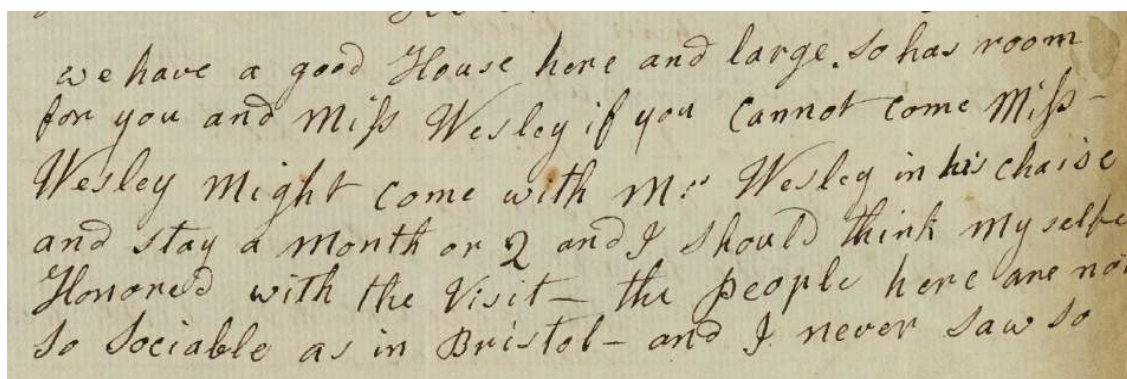 we have a good House here and large. So has room
for you and Miſs Wesley if you cannot come Miſs -
Wesley Might come with Mr Wesley in his chaise
and stay a Month or 2 and I should think my selfe
Honored with the Visit - the people here are not
So Sociable as in Bristol - and I never saw so